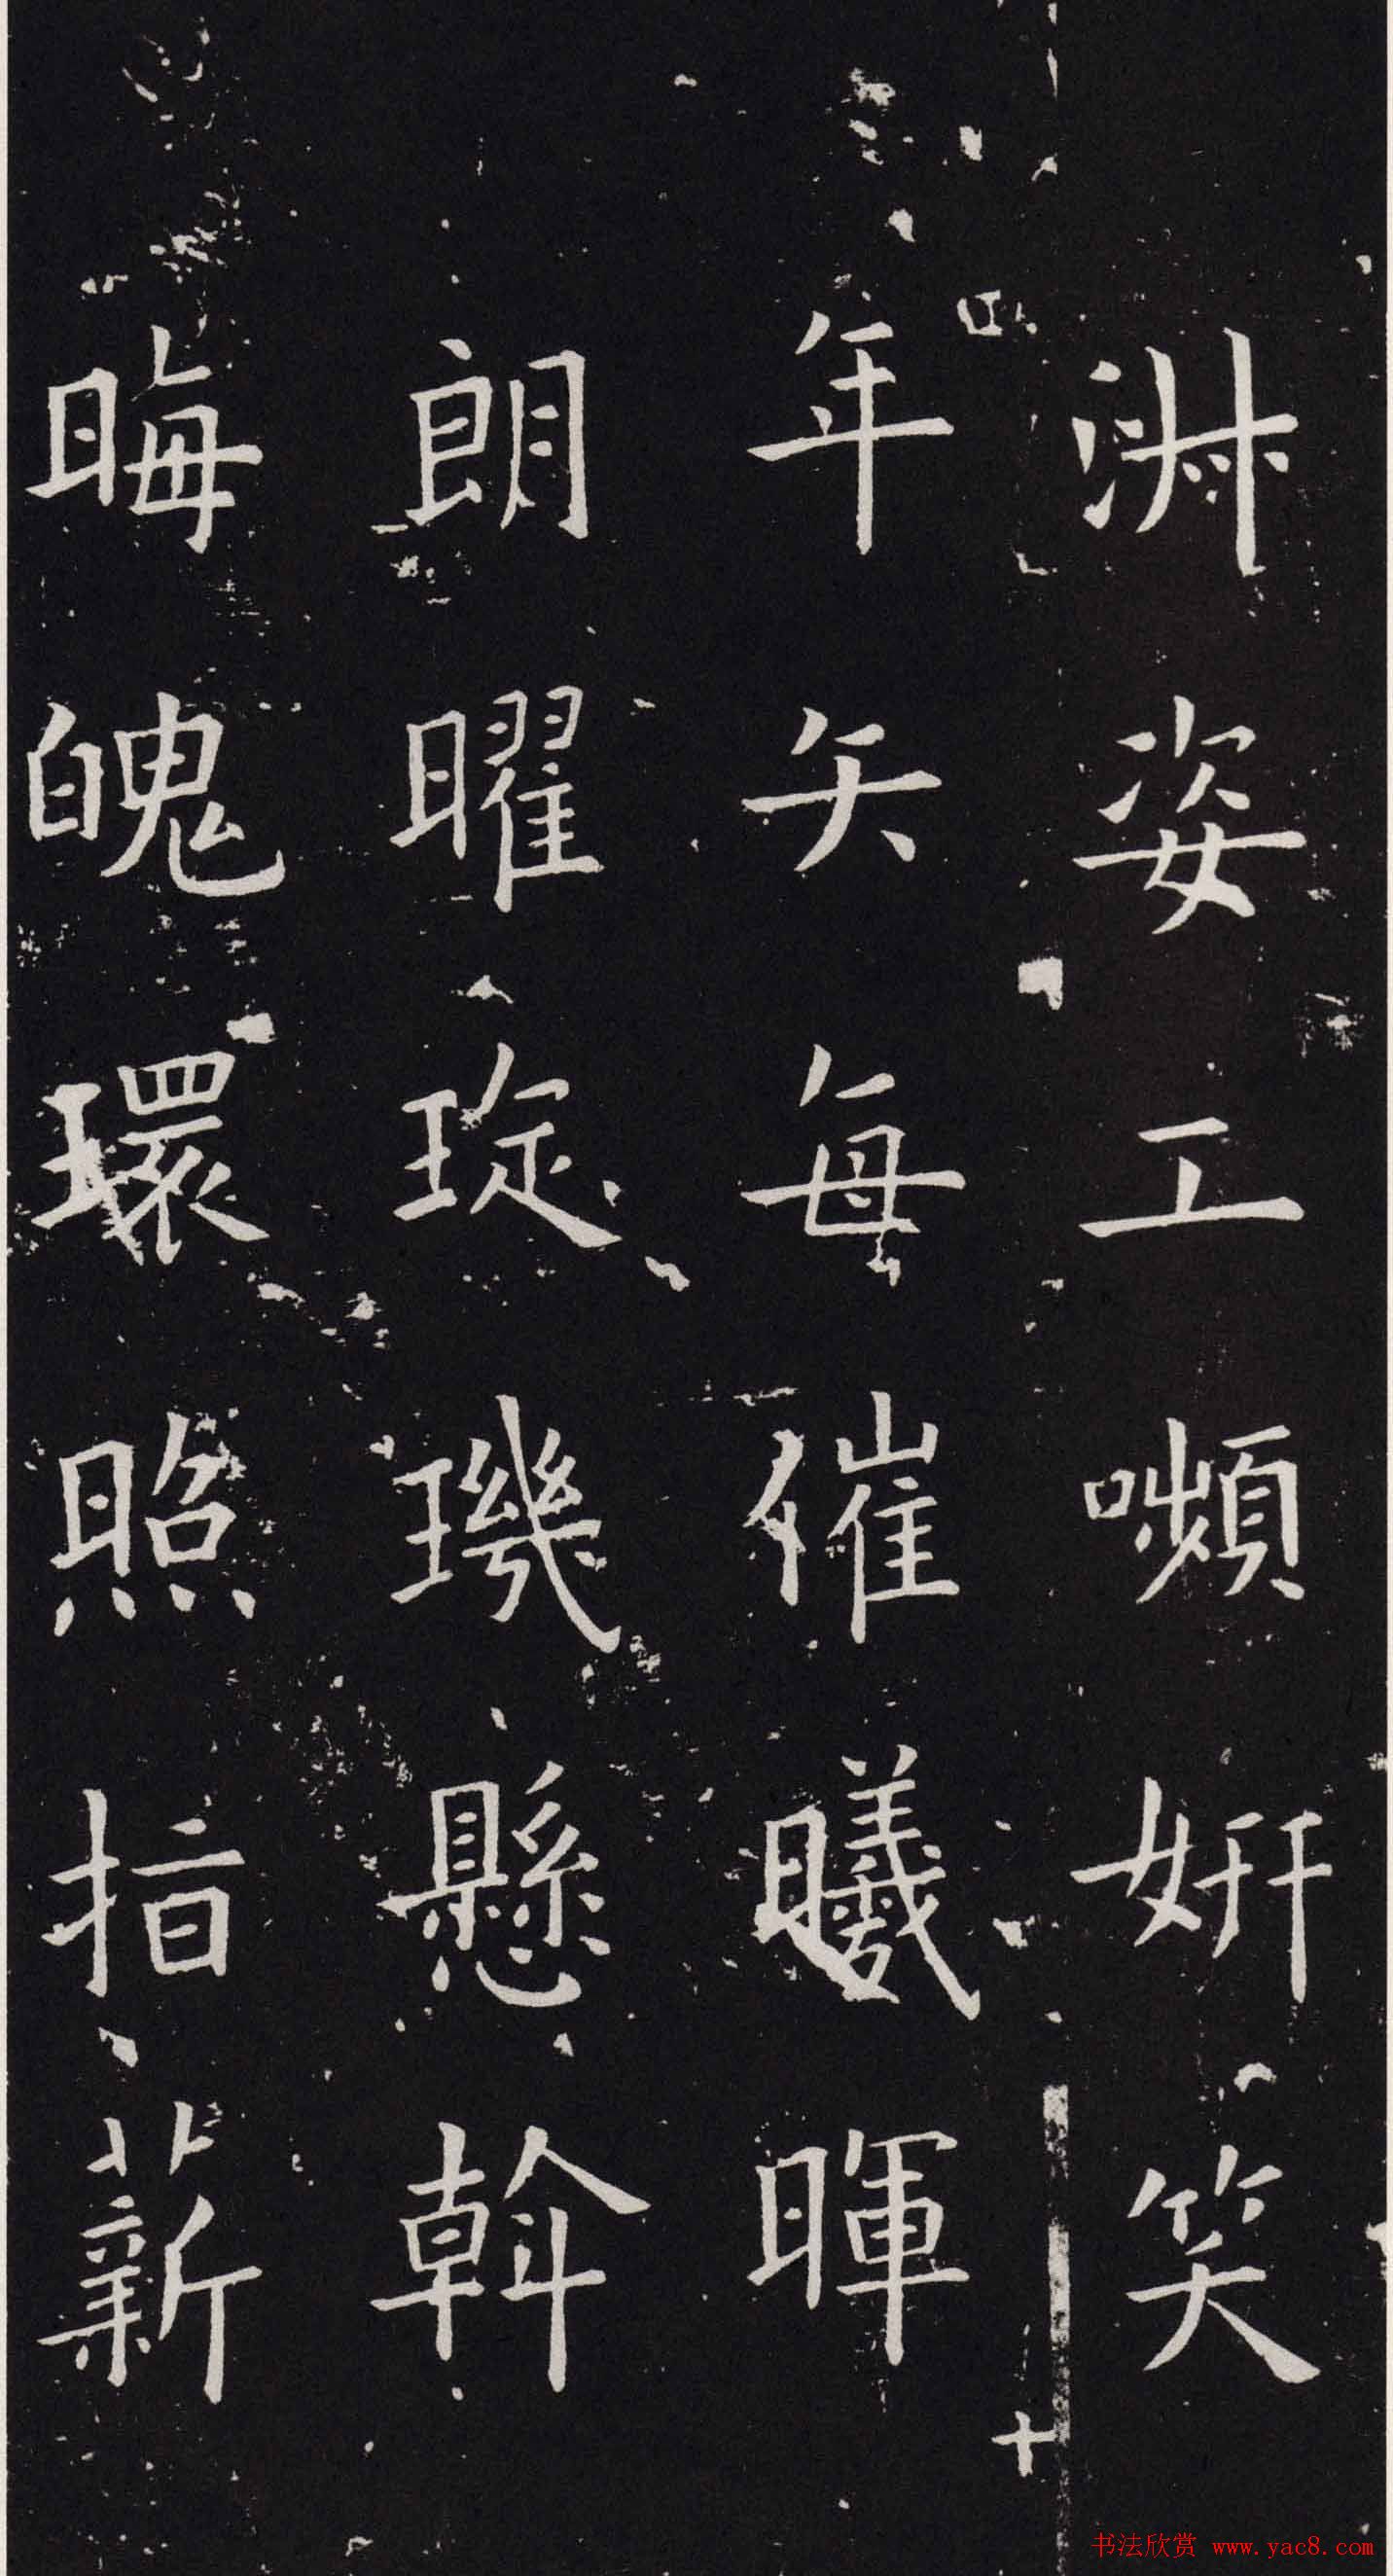 淋姿工嚬妍笑
年矢每催曦暉
朗曜琁璣懸斡
晦魄環照指薪
十
书法欣赏 www.yac8.com